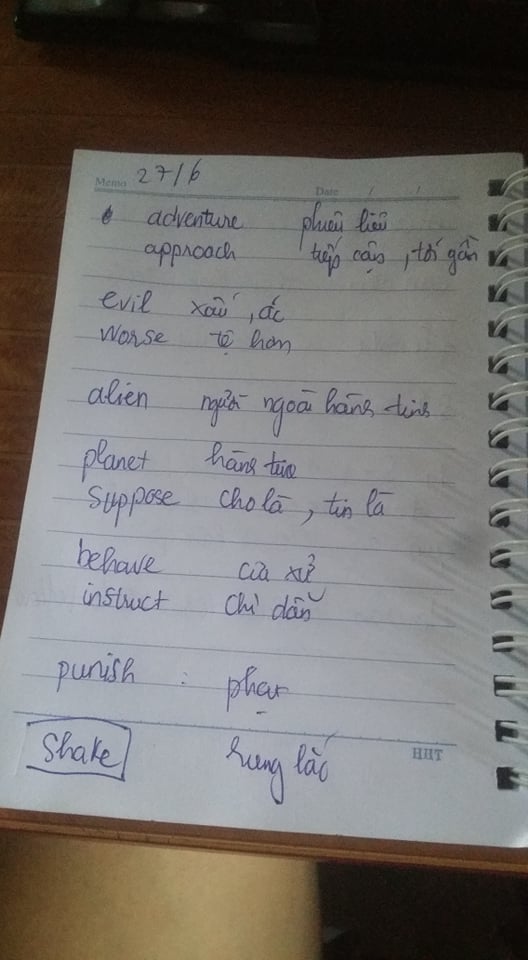 Memo 27/6 Date / /
adventure phiêu liêu
approach tiếp cận, tới gần
evil xấu, ác
worse tệ hơn
alien người ngoài hành tinh
planet hành tinh
suppose cho là, tin là
behave cửa xử
instruct chỉ dẫn
punish : phạt
Shake rung lắc
HHT